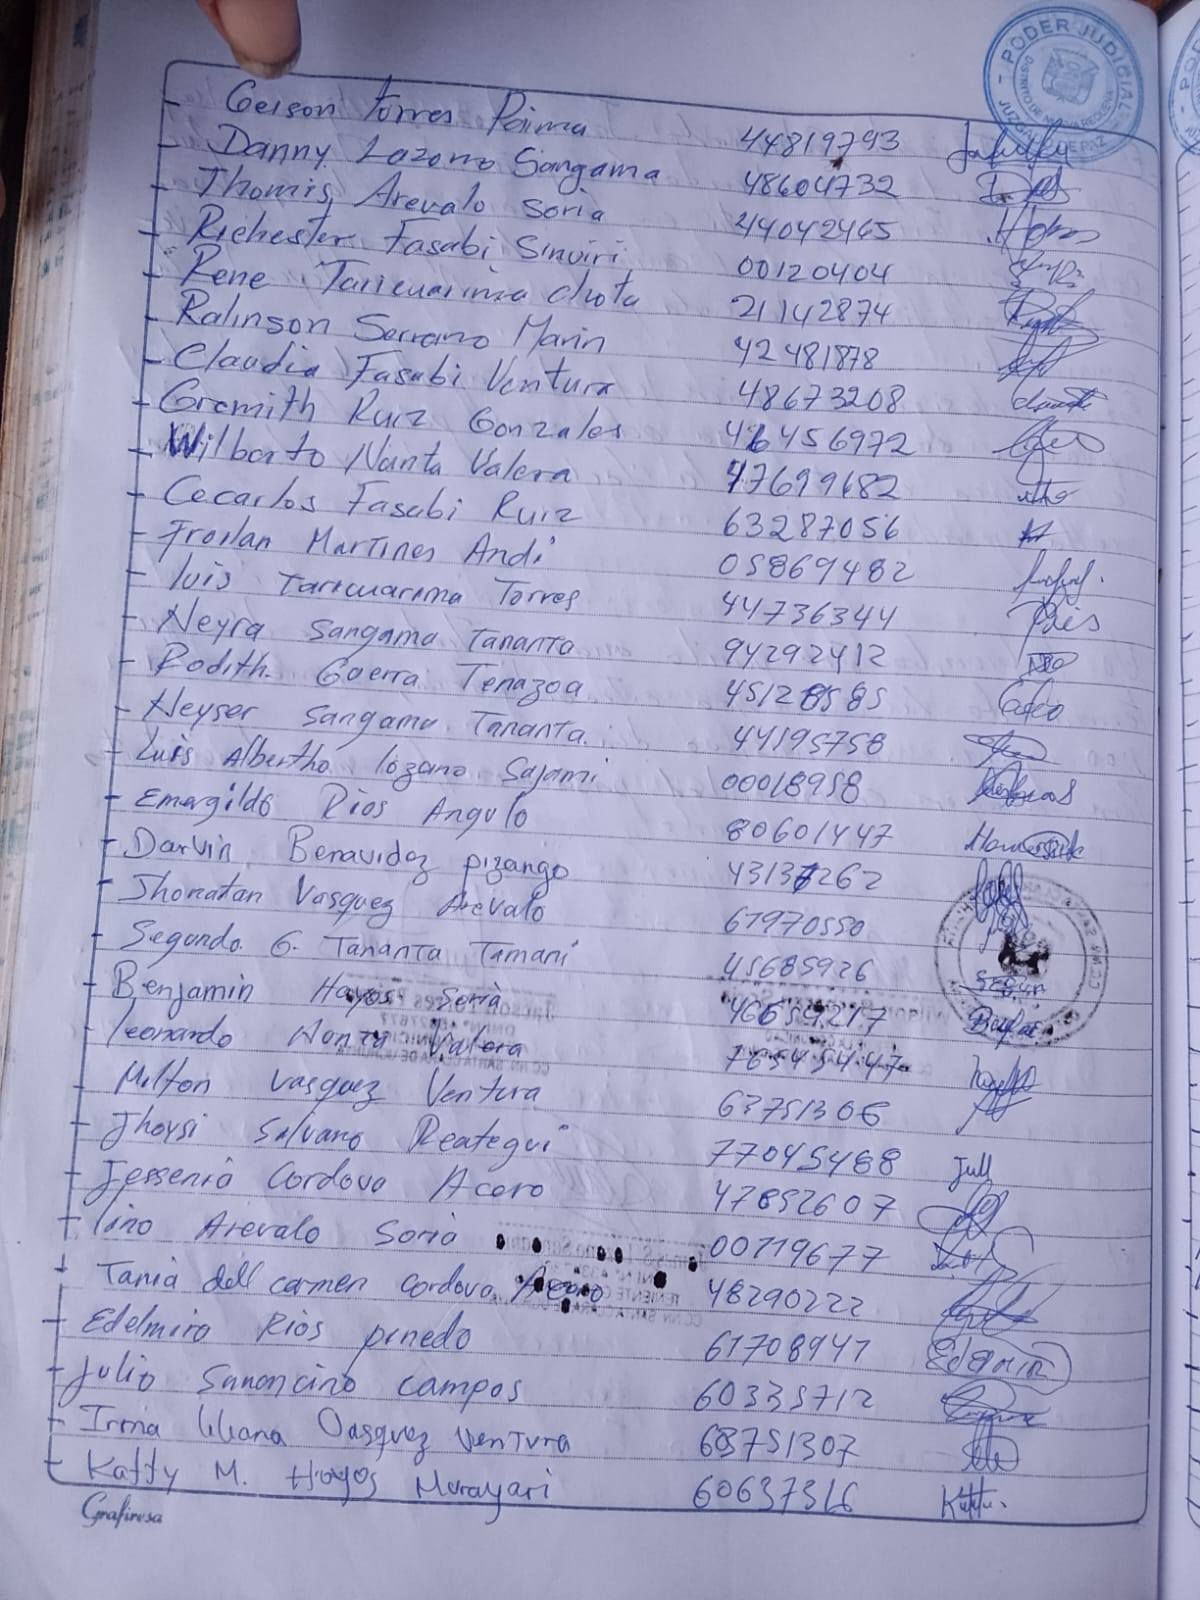 PODER JUDICIAL
JUZGADO DE PAZ
Gerson Torres Paima 44819793
- Danny Lozano Sangama 48604732
- Jhomis Arevalo Soria 44042465
- Richester Fasabi Sinuiri 00120404
- Rene Taricuarima Chota 21142874
- Ralinson Serrano Marin 42481878
- Claudia Fasabi Ventura 48673208
- Gremith Ruiz Gonzales 46456972
- Wilberto Nanta Valera 47699682
- Cecarlos Fasabi Ruiz 63287056
- Froilan Martines Andi 05869482
- luis Taricuarima Torres 44736344
- Neyra Sangama Tananta 94292412
- Rodith. Guerra Tenazoa 45128585
- Neyser Sangama Tananta. 44195758
- Luis Albertho lozano Sajami 00018958
- Emergildo Rios Angulo 80601447
- Darvin Benavidez pizango 43137262
- Jhonatan Vasquez Arevalo 61970550
- Segundo. G. Tananta Tamani 45685926
- Benjamin Hoyos Soria 46659217
- leonardo Nonta Valera 76545447
- Milton vasquez Ventura 63751306
- Jhoysi Salvano Reategui 77045488
- Jessenia Cordova Acoro 47852607
- lino Arevalo Soria 00119677
- Tania dell carmen cordova Acoro 48290222
- Edelmiro Rios pinedo 61708941
- Julio Sanancino campos 60335712
- Irma liliana Vasquez Ventura 63751307
- Katty M. Hoyos Murayari 60637316
Grafirosa